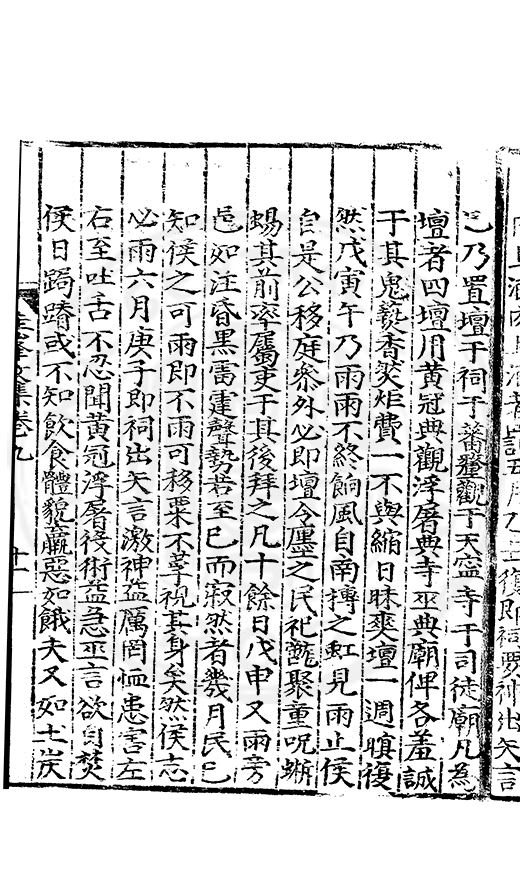 酒者詰五月
復即祠要神出矢言
乃置壇于祠于蕃釐觀于天寧寺于司徒廟凡為
壇者四壇用黄冠典觀浮屠典寺巫典廟俾各羞誠
于其鬼爇香焚炸費一不與縮日昧爽壇一週暝復
然戊寅午乃雨雨不終餉風自南摶之虹見雨止侯
自是公移庭叅外必即壇令廛之民祀龍聚童呪蜥
蜴其前率屬吏于其後拜之凡十餘日戊申又雨旁
邑如注昏黒雷霆聲勢若至已而寂然者幾月民已
知侯之可雨即不雨可移粟不莩視其身矣然侯志
必雨六月庚子即祠出矢言激神益厲罔恤患害左
右至吐舌不忍聞黄冠浮屠役術益急巫言欲自焚
侯日跼蹐或不知飲食體貌羸惡如餓夫又如七
文集卷九
十一